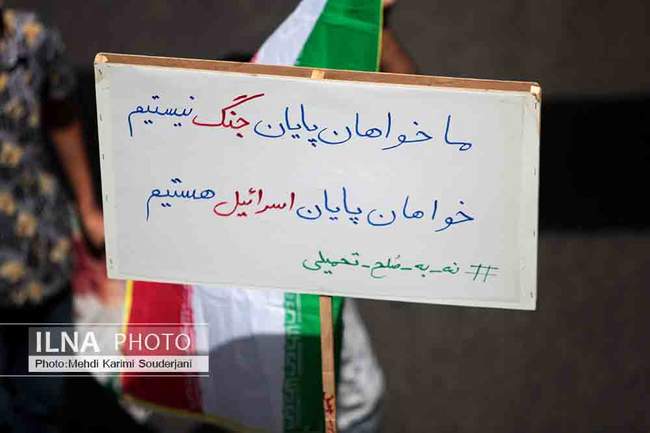 ما خواهان پایان جنگ نیستیم
خواهان پایان اسرائیل هستیم
#نه_به_صلح_تحمیلی
ILNA PHOTO
Photo:Mehdi Karimi Souderjani